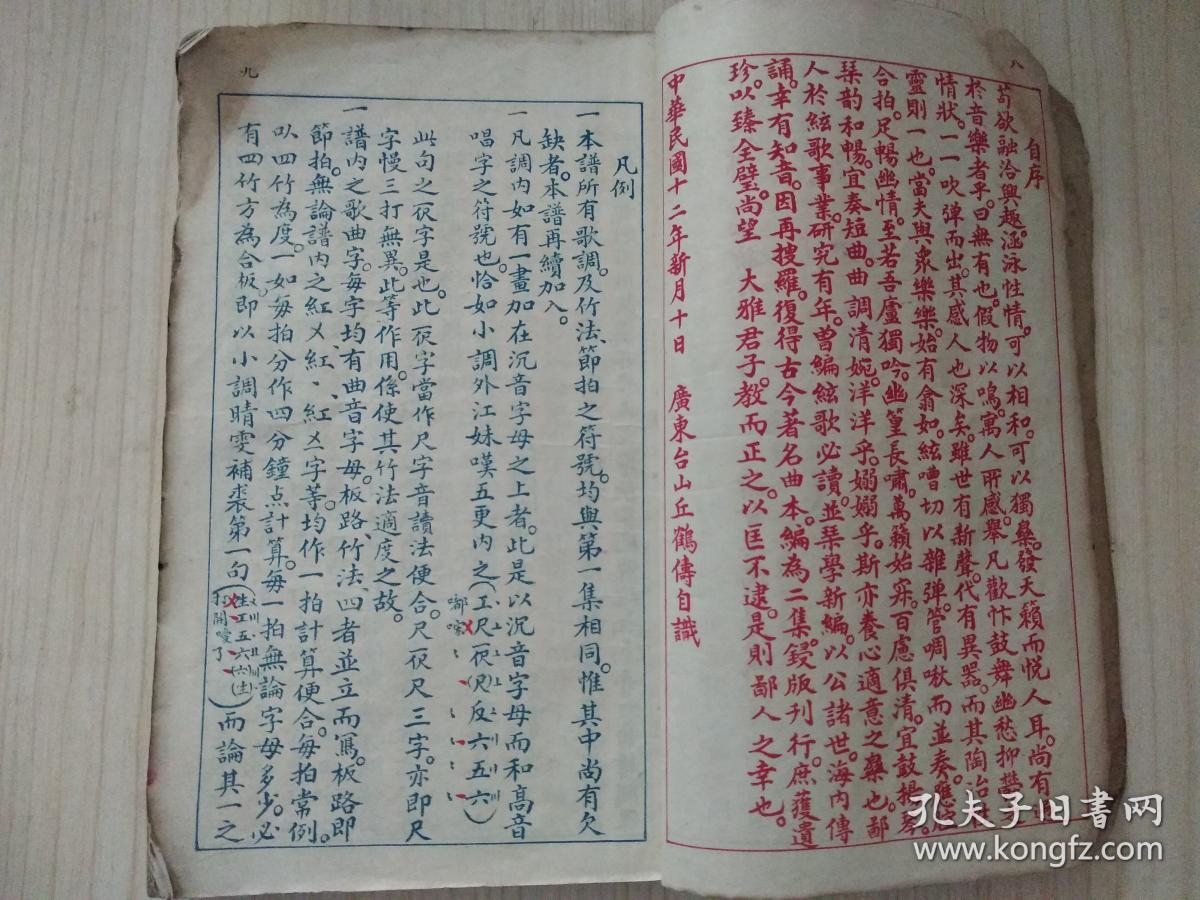 八
自序
苟欲融洽興趣。涵泳性情。可以相和。可以獨樂。發天籟而悦人耳。尚有
於音樂者乎。曰無有也。假物以鳴。寓人所感。舉凡歡忭鼓舞幽愁抑鬱
情狀。一一吹弹而出。其感人也深矣。雖世有新聲。代有異器。而其陶冶性
靈則一也。當夫與衆樂樂。始有翕如。絃嘈切以雜弹。管啁啾而並奏。
合拍。足暢幽情。至若吾廬獨吟。幽篁長嘯。萬籟始寂。百慮俱清。宜鼓揚琴。
琹韵和暢。宜奏短曲。曲調清婉。洋洋乎。嫋嫋乎。斯亦養心適意之樂也。鄙
人於絃歌事業。研究有年。曾編絃歌必讀。並琹學新編。以公諸世。海内傳
誦。幸有知音。因再搜羅。復得古今著名曲本。編為二集。鋟版刊行。庶獲遺
珍。以臻全璧。尚望 大雅君子。教而正之。以匡不逮。是則鄙人之幸也。
中華民國十二年新月十日 廣東台山丘鶴儔自識
九
凡例
一本譜所有歌調。及竹法、節拍之符號。均與第一集相同。惟其中尚有欠
缺者。本譜再續加入。
一凡調内如有一畫加在沉音字母之上者。此是以沉音字母而和高音
唱字之符號也。恰如小調外江妹嘆五更内之(工尺伬(尺)反六五六)
嘟囌
此句之伬字是也。此伬字當作尺字音讀法便合。尺伬尺三字。亦即尺
字慢三打無異。此等作用。係使其竹法適度之故。
一譜内之歌曲字。每字均有曲音字母。板路、竹法、四者並立而寫。板路即
節拍。無論譜内之紅㐅、紅、紅乂字等。均作一拍計算便合。每拍常例。
以四竹為度。一如每拍分作四分鐘点計算。每一拍無論字母多少。必
有四竹方為合板。即以小調晴雯補裘第一句(生工五六六(士)
打開嗳了
)而論其一之
孔夫子旧书网
www.kongfz.com